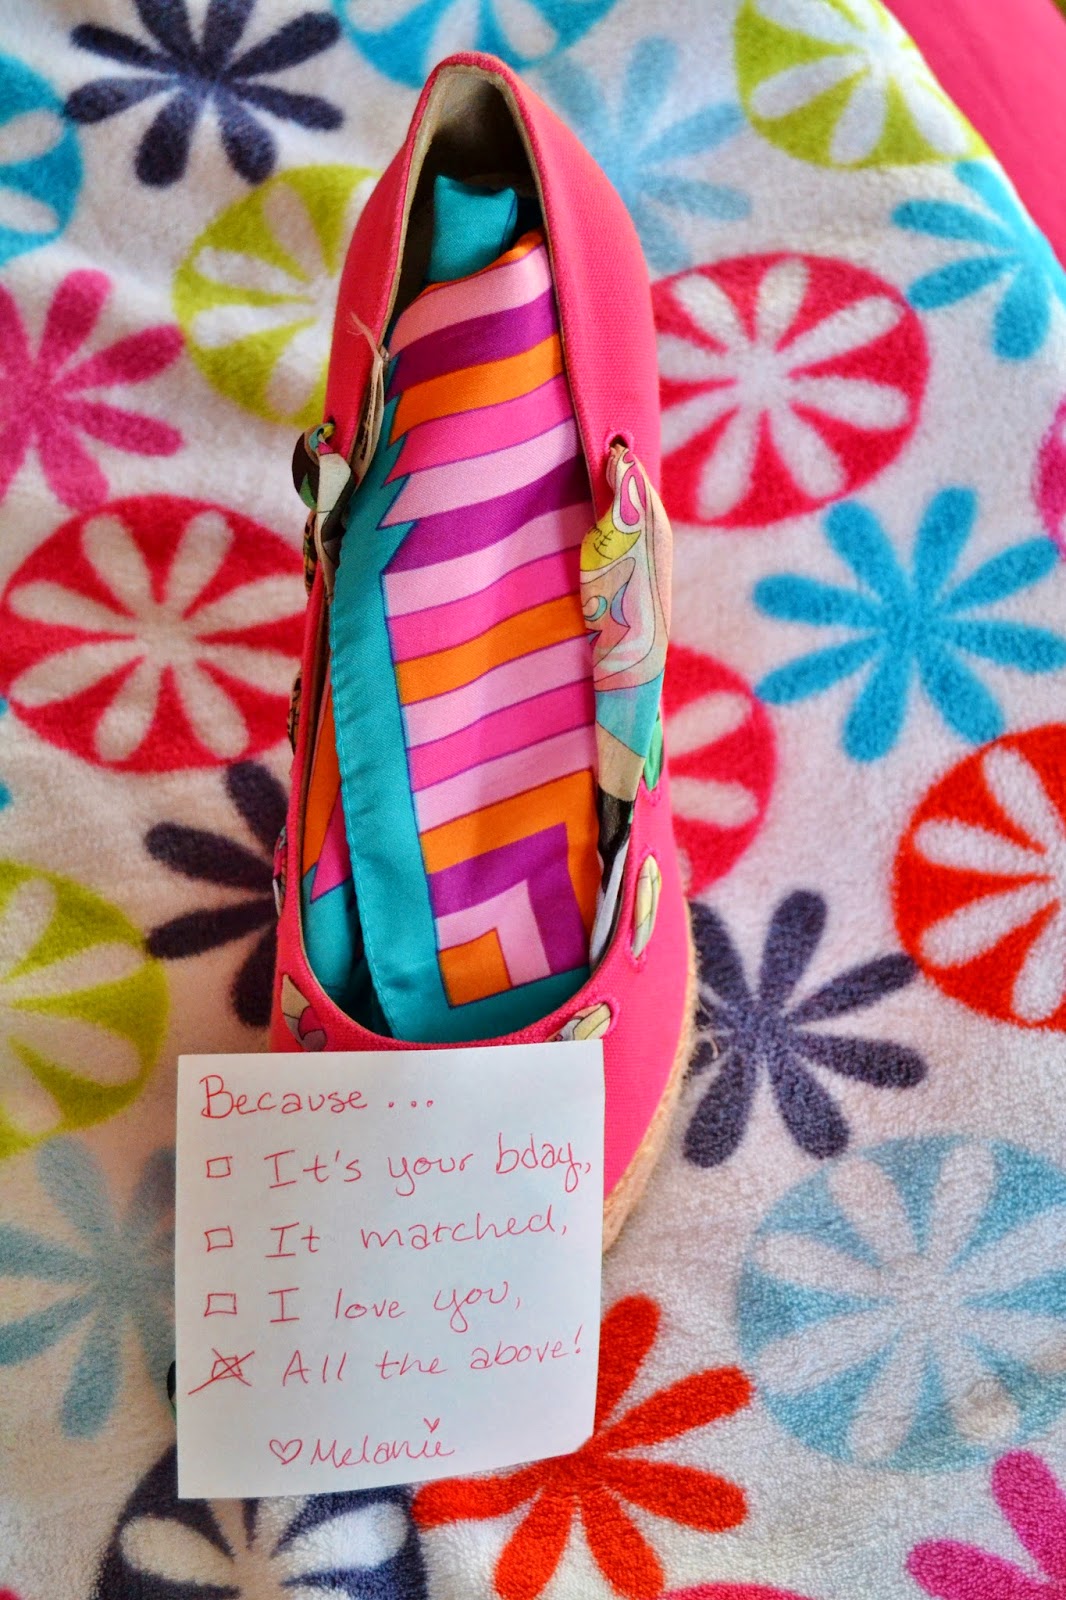 Because...
□ It's your bday,
□ It matched,
□ I love you,
☒ All the above!
♡ Melanie